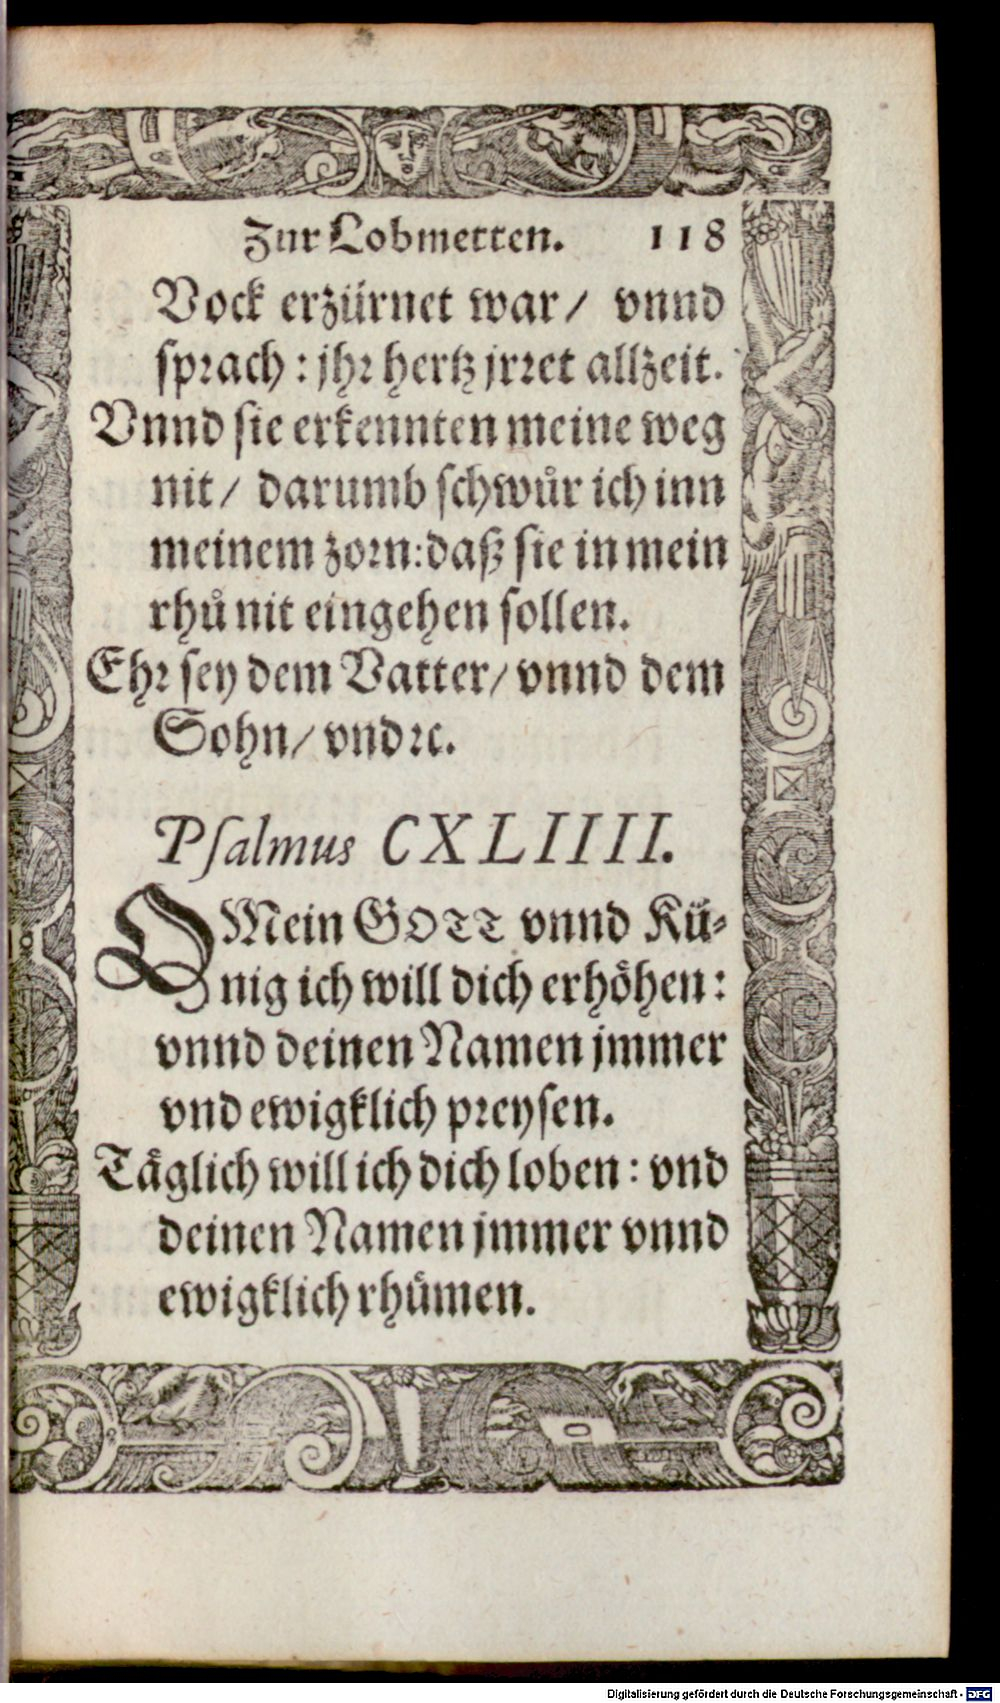 Zur Lobmetten. 118
Vock erzürnet war / vnnd
sprach : jhr hertz jrret allzeit.
Vnnd sie erkennten meine weg
nit / darumb schwůr ich inn
meinem zorn: daß sie in mein
rhů nit eingehen sollen.
Ehr sey dem Vatter / vnnd dem
Sohn / vnd ꝛc.
Psalmus CXLIIII.
O Mein GOTT vnnd Kü-
nig ich will dich erhöhen :
vnnd deinen Namen jmmer
vnd ewigklich preysen.
Täglich will ich dich loben : vnd
deinen Namen jmmer vnnd
ewigklich rhümen.
Digitalisierung gefördert durch die Deutsche Forschungsgemeinschaft - DFG